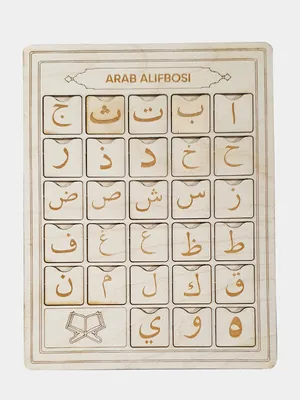 ARAB ALIFBOSI
ا ب ت ث ج
ح خ د ذ ر
ز س ش ص ض
ط ظ ع غ ف
ق ك ل م ن
ه و ي